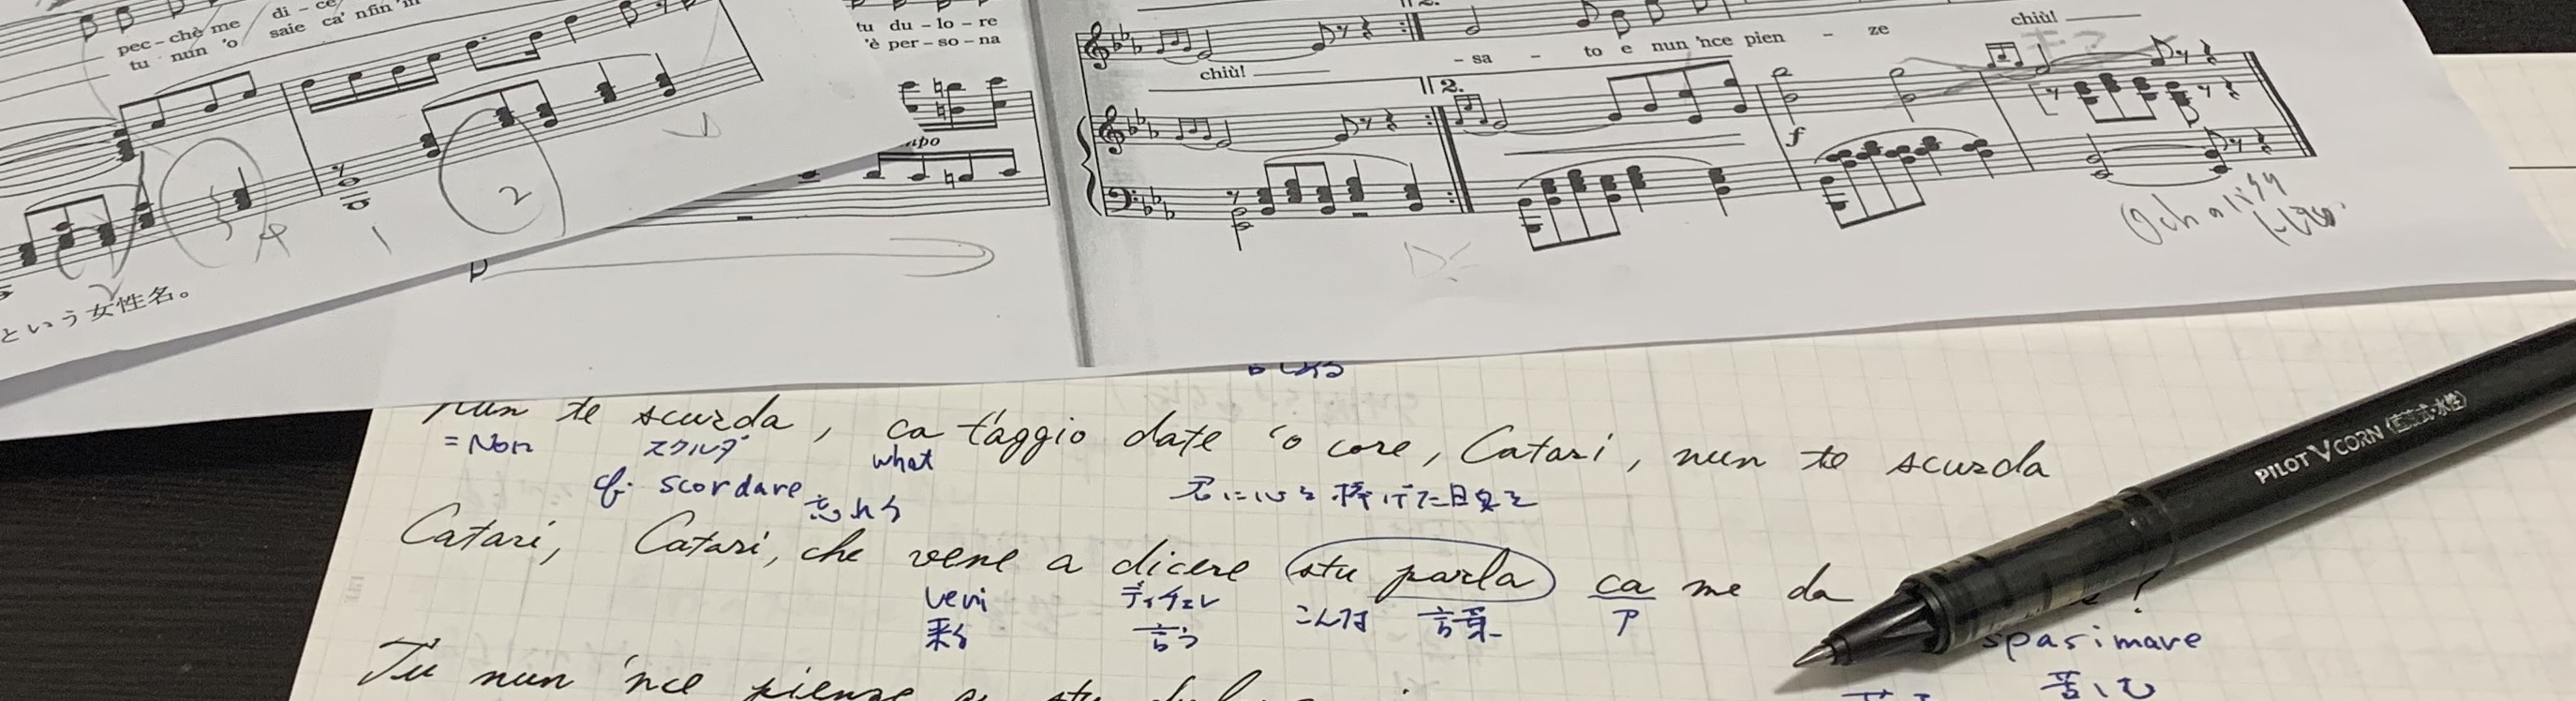 pec - chè me di - ce
tu nun 'o saie ca' nfin 'n
という女性名。
4
1
2
tu du - lo - re
'è per - so - na
chiù!
2.
- sa - to e nun 'nce pien - ze
chiù!
f
nun te scurda, ca t'aggio date 'o core, Catari, nun te scurda
=Non スクルダ what
cf. scordare 忘れる 君に心を捧げた日々を
Catari, Catari, che vene a dicere stu parla ca me da
veni ディチェレ こんな 言葉 ?
来る 言う
spasimare
苦しむ
Tu nun 'nce pienze
PILOT V CORN (直液式・水性)